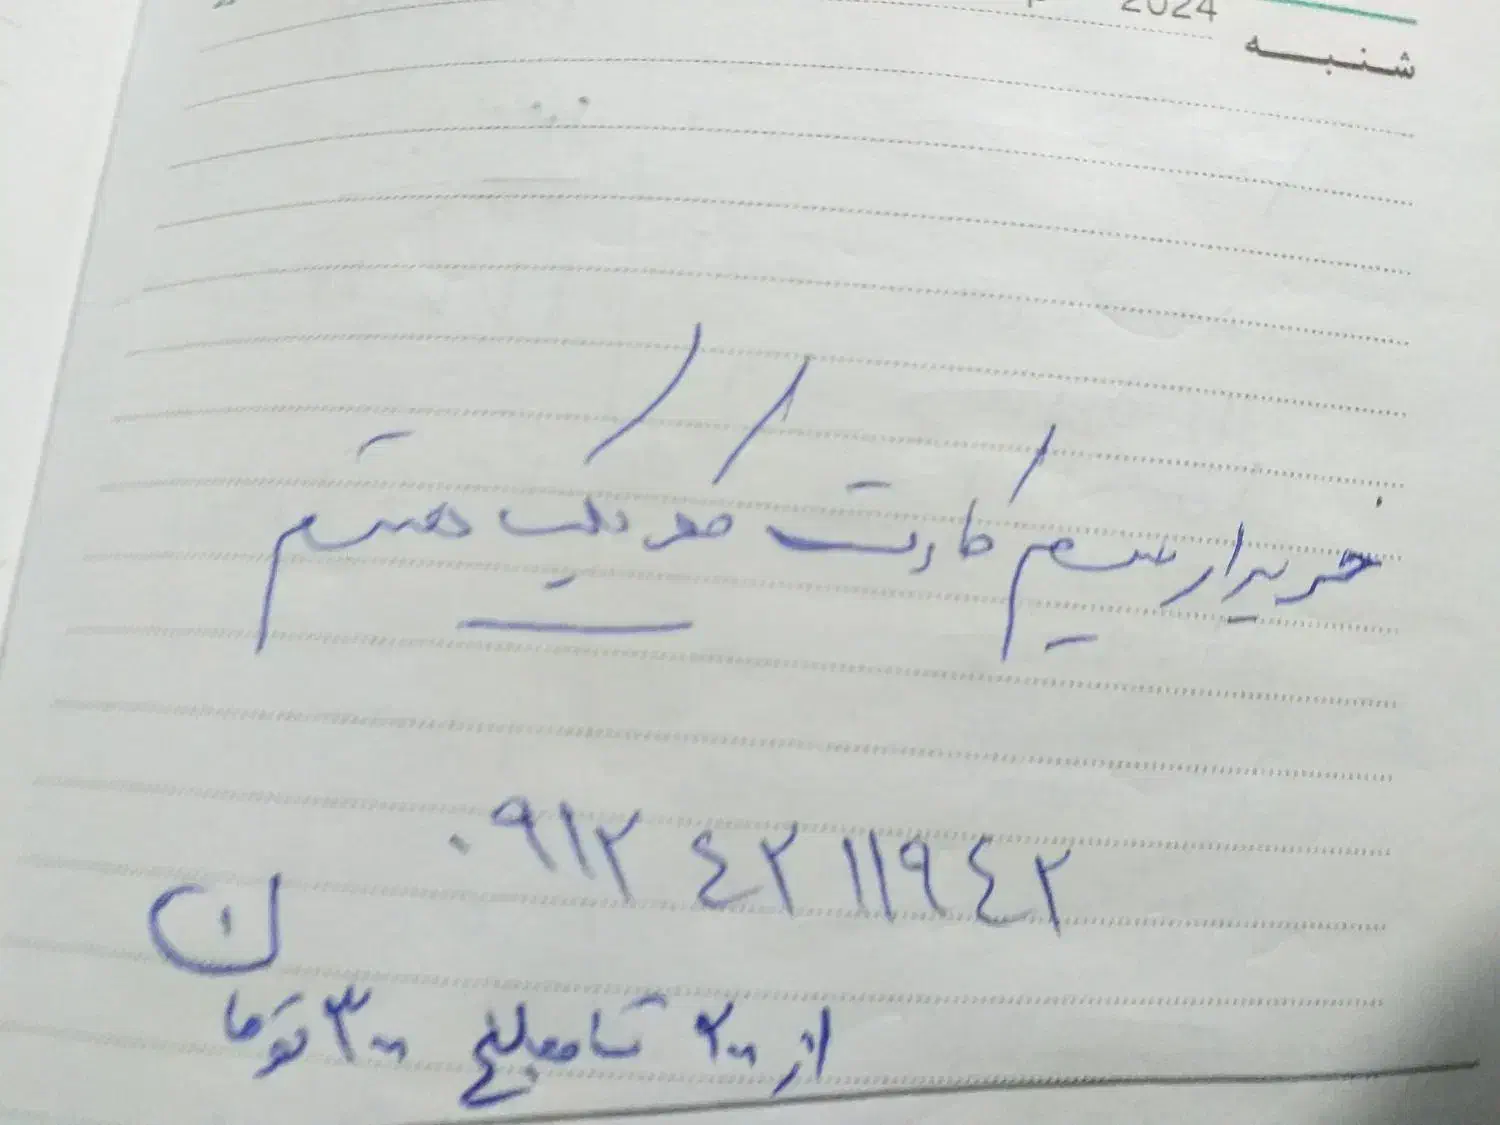 2024
شنبه
خریدار سیم کارت موبایل هستم
۰۹۱۲ ٤۲ ۱۱۹٤۲
از ۲۰۰ تا مبالغ ۳۰۰ تومان